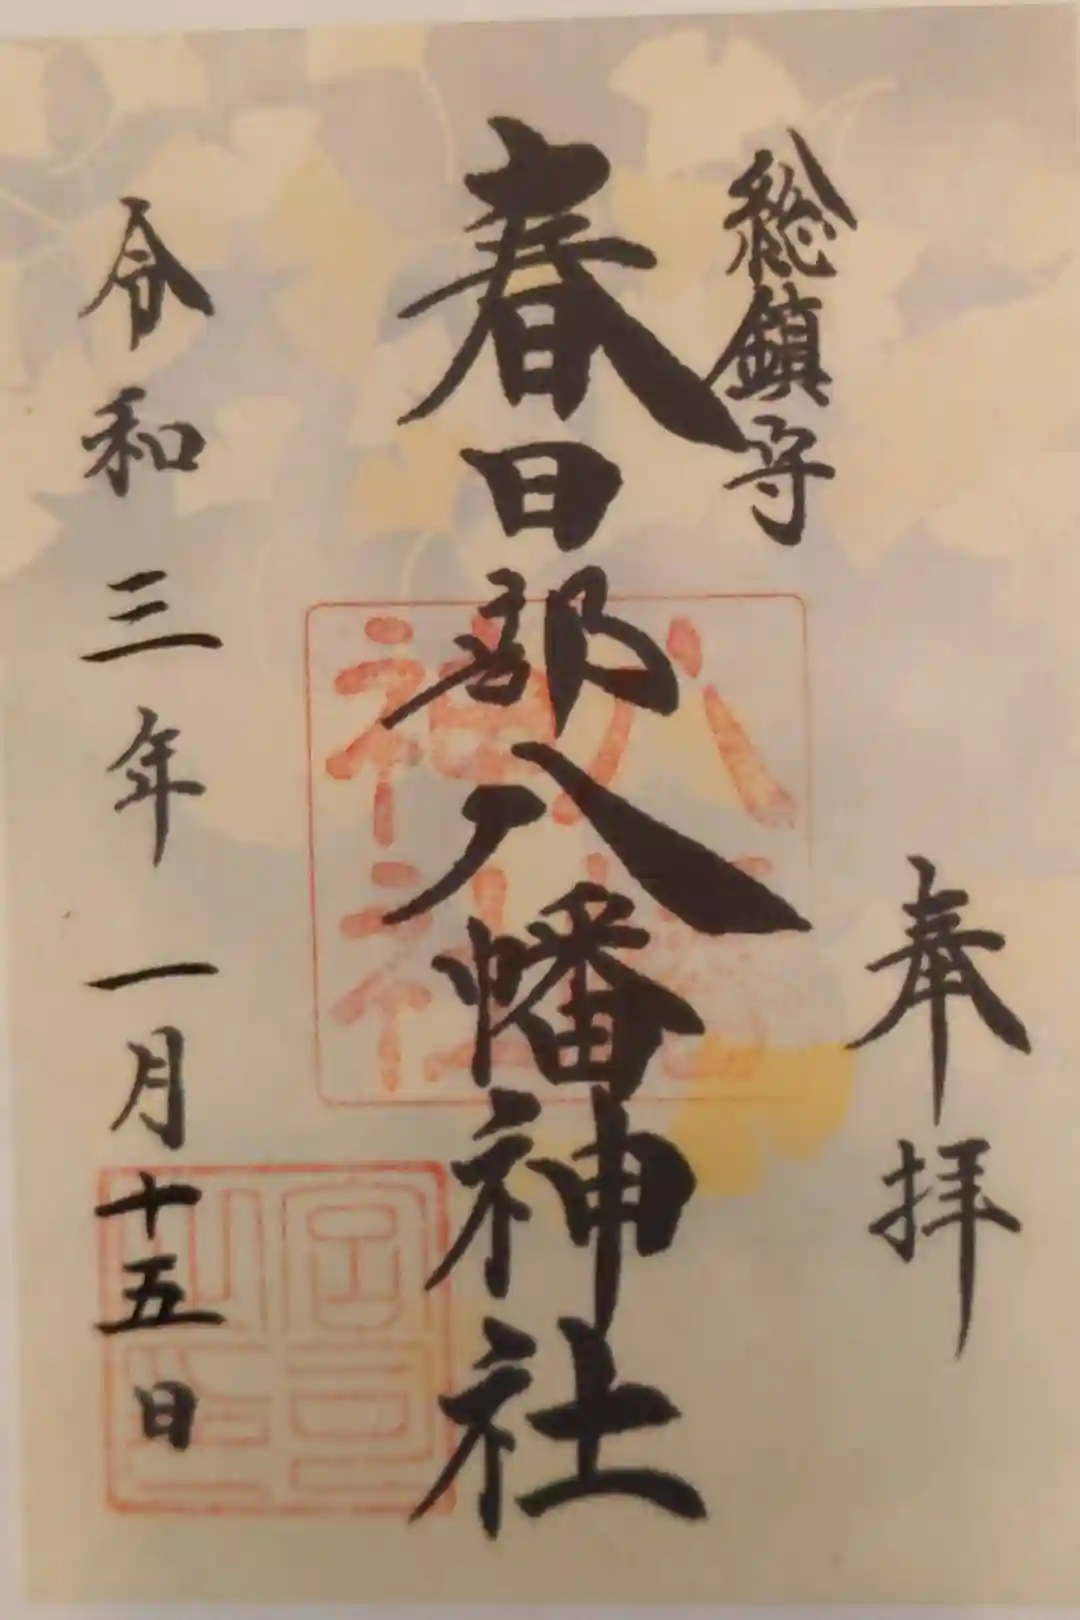 奉拝
総鎮守
春日部八幡神社
令和三年一月十五日
八幡神社
宮司之印